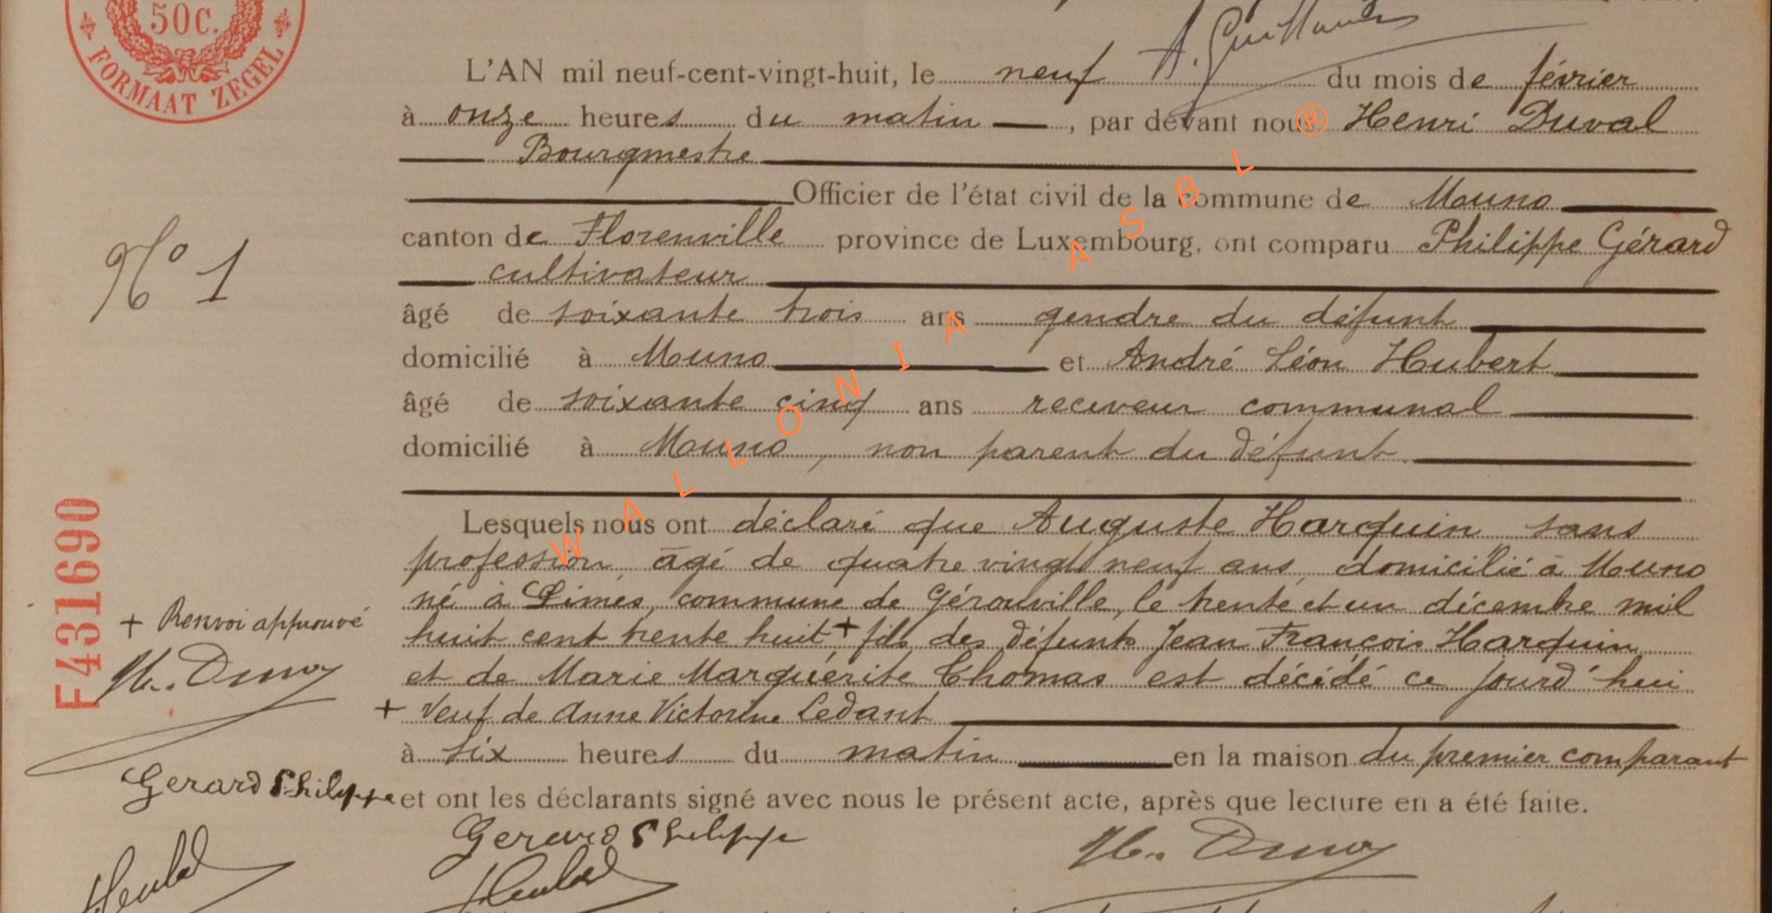 50C.
FORMAAT ZEGEL
A. Guillaume
L'AN mil neuf-cent-vingt-huit, le neuf du mois de février
à onze heures du matin, par devant nous Henri Duval
Bourgmestre
Officier de l'état civil de la commune de Muno
canton de Florenville province de Luxembourg, ont comparu Philippe Gérard
cultivateur
âgé de soixante trois ans gendre du défunt
domicilié à Muno et André Léon Hubert
âgé de soixante cinq ans receveur communal
domicilié à Muno, non parent du défunt
Lesquels nous ont déclaré que Auguste Harquin sans
profession, âgé de quatre vingt neuf ans, domicilié à Muno
né à Limes, commune de Gérouville, le trente et un décembre mil
huit cent trente huit + fils des défunts Jean François Harquin
et de Marie Marguérite Thomas est décédé ce jourd'hui
+ Veuf de Anne Victorine Ledant
à six heures du matin en la maison du premier comparant
et ont les déclarants signé avec nous le présent acte, après que lecture en a été faite.
Gerard Philippe
H. Duval
Hubert
N° 1
F431690
+ Renvoi approuvé
H. Duval
Gerard Philippe
Hubert
WALLONIA ASBL ®